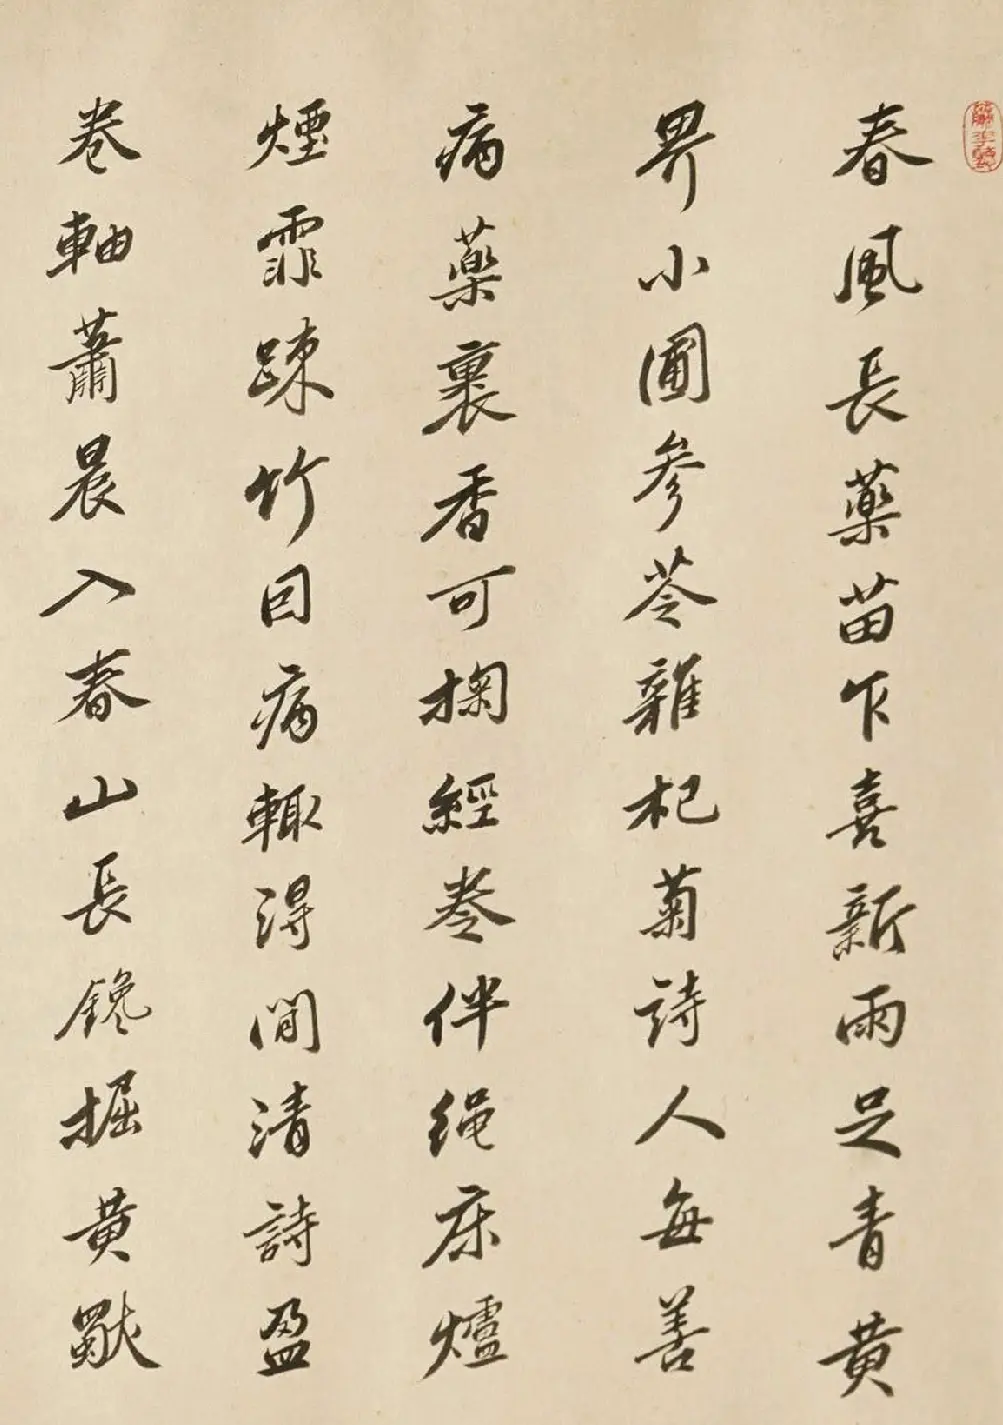 春風長藥苗乍喜新雨足青黃
界小圃參苓雜杞菊詩人每善
病藥裹香可掬經卷伴繩床爐
煙霏踈竹因病輒得間清詩盈
卷軸蕭晨入春山長鑱掘黃獨